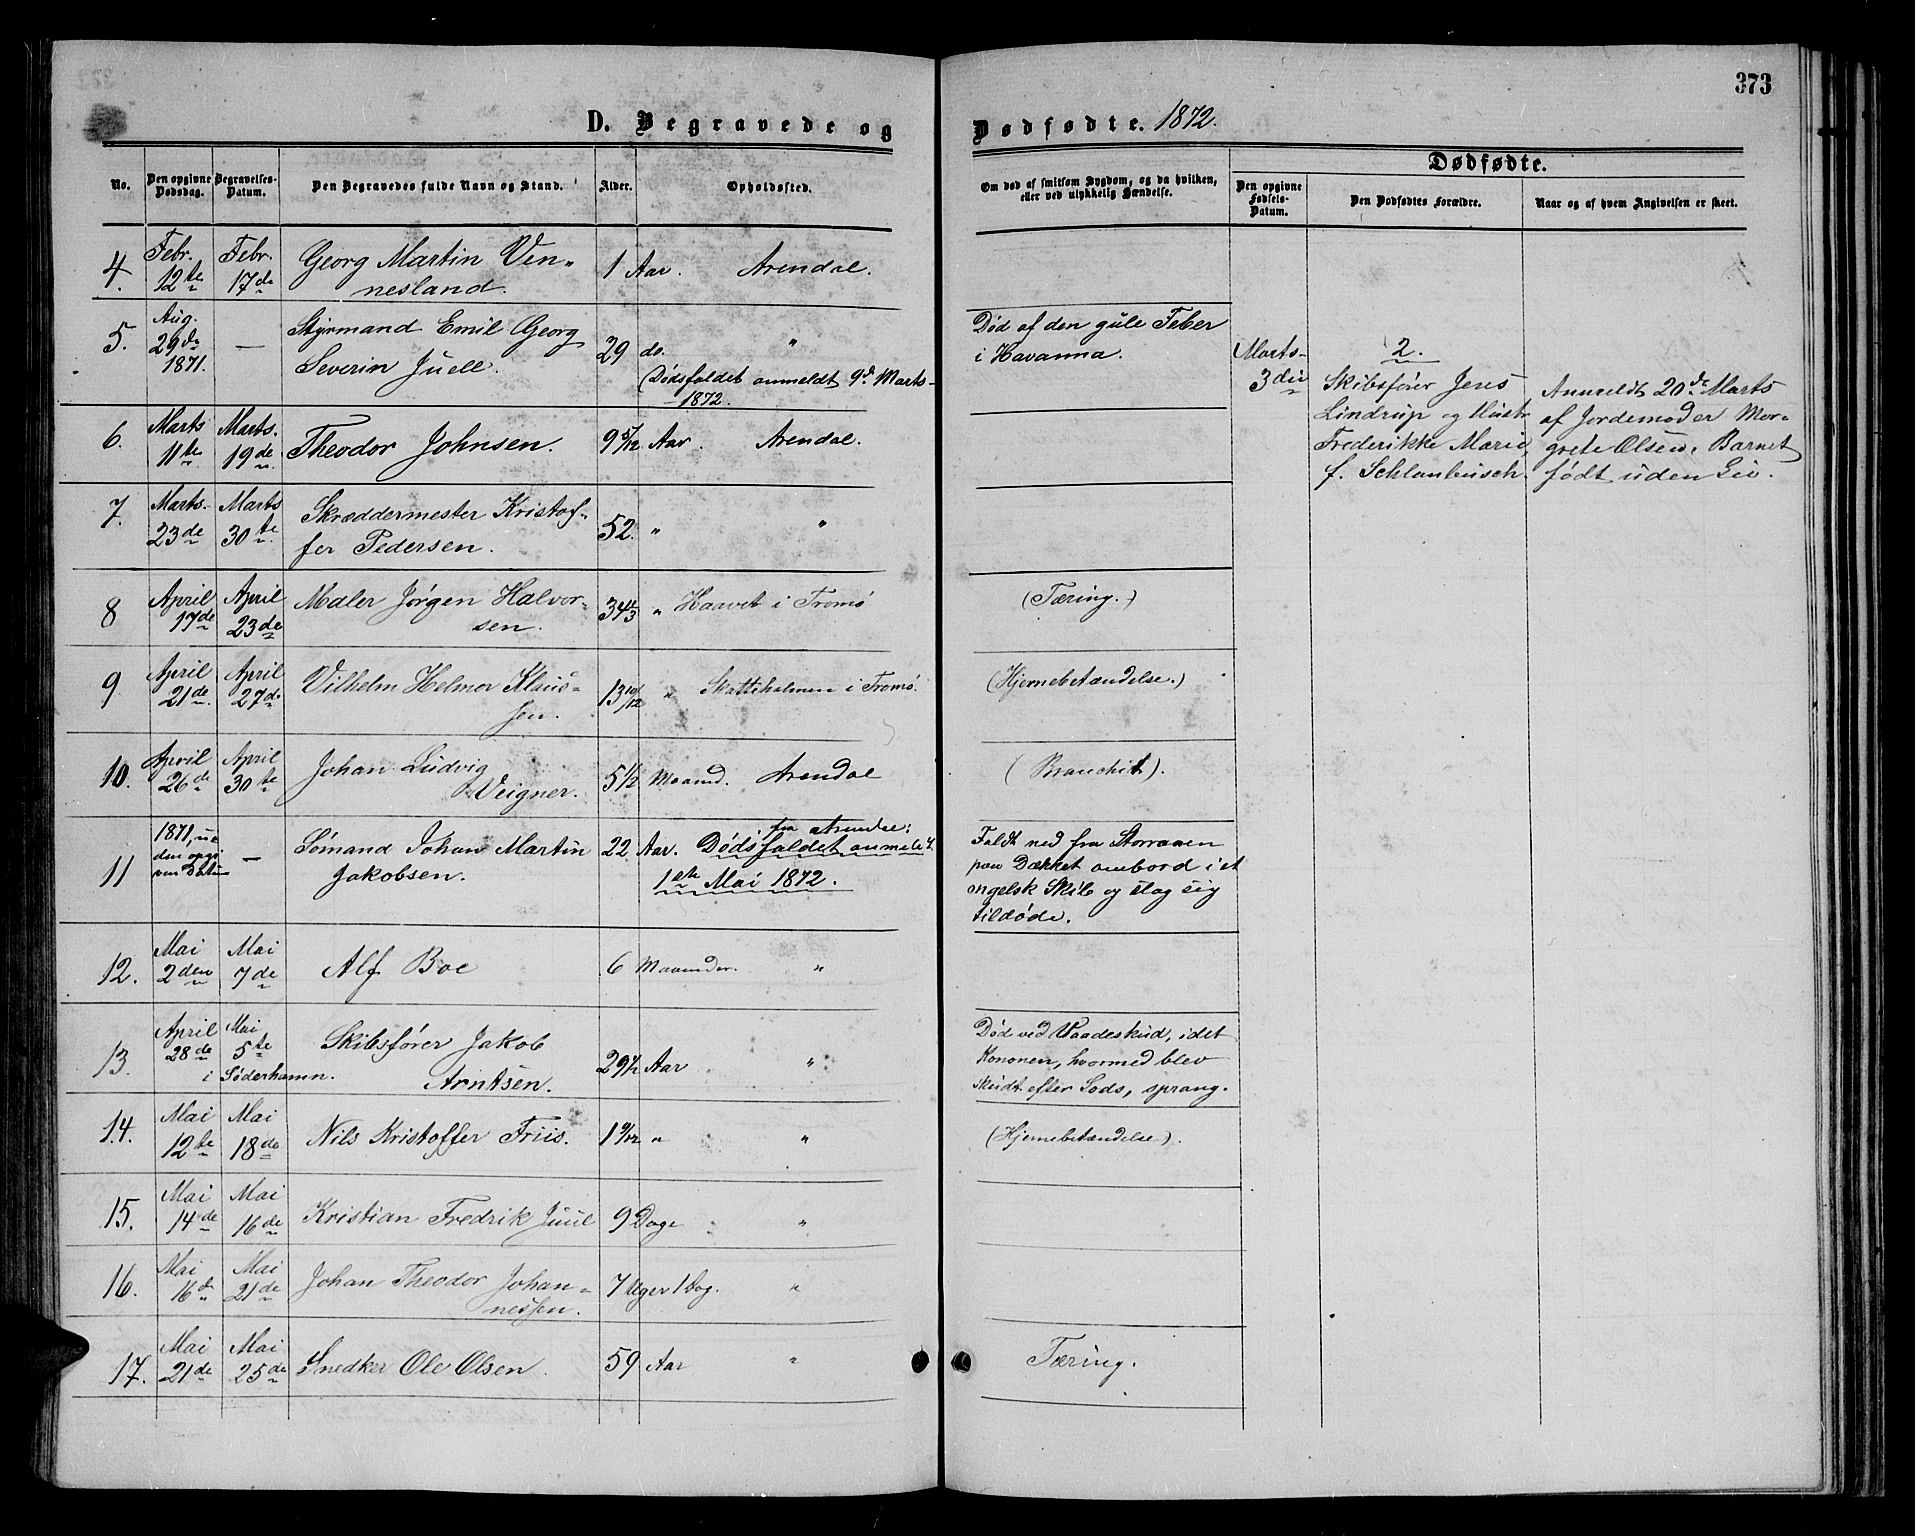 373
D. Begravede og Dødfødte. 1872.
No.
Den opgivne Dødsdag.
Begravelses-Datum.
Den Begravedes fulde Navn og Stand.
Alder.
Opholdssted.
Om død af smitsom Sygdom, og da hvilken,
eller ved ulykkelig Hændelse.
Dødfødte.
Den opgivne Fødsels-Datum.
Den Dødfødtes Forældre.
Naar og af hvem Angivelsen er skeet.
4. Febr. 12te Febr. 17de Georg Martin Ven„ 1 Aar. Arendal.
nesland.
5. Aug. 29de 1871. — Styrmand Emil Georg 29 do. „ Død af den gule Feber
Severin Juell. (Dødsfaldet anmeldt 9d Marts- i Havanna.
1872.
Marts 3die 2.
Skibsfører Jens
Lindrup og Hustr
Frederikke Marie
f. Schlanbusch.
Anmeldt 20de Marts
af Jordemoder Mar-
grete Olsen. Barnet
født uden Liv.
6. Marts 11te Marts. 19de Theodor Johnsen. 9 5/12 Aar. Arendal.
7. Marts. 23de Marts 30te Skræddermester Kristof- 52. „ „
fer Pedersen.
8 April 17de April 23de Maler Jørgen Halvor- „ Haavet i Tromø (Tæring.)
sen.
9 April 21de April 27de Vilhelm Helmer Klaus- 13 10/12 „ Skatteholmen i Tromø. (Hjernebetændelse.)
sen.
10. April 26de April 30te Johan Ludvig 5 1/2 Maaned. Arendal (Bronchit).
Veigner.
11 1871, uden opgiven Datum — Sømand Johan Martin 22 Aar. fra Arendal:
Jakobsen. Dødsfaldet anmeldt
1ste Mai 1872.
Faldt ned fra Storraaen
paa Dækket ombord i et
engelsk Skib og slog sig
tildøde.
12. Mai 2den Mai 7de Alf Boe 6 Maaneder. „
13. April 28de Mai 5te i Söderhamn. Skibsfører Jakob 29 1/2 Aar „
Arntsen.
Død ved Vaadeskud, idet
Kanonen, hvormed blev
skudt efter Lods, sprang.
14. Mai 12te Mai 18de Nils Kristoffer Friis. 1 9/12 „ „ (Hjernebetændelse).
15. Mai 14de Mai 16de Kristian Fredrik Juul 9 Dage „
16. Mai 16de Mai 21de Johan Theodor Johan- 7 Uger 1 Dag. „
nessen.
17. Mai 21de Mai 25de Snedker Ole Olsen 59 Aar „ Tæring.